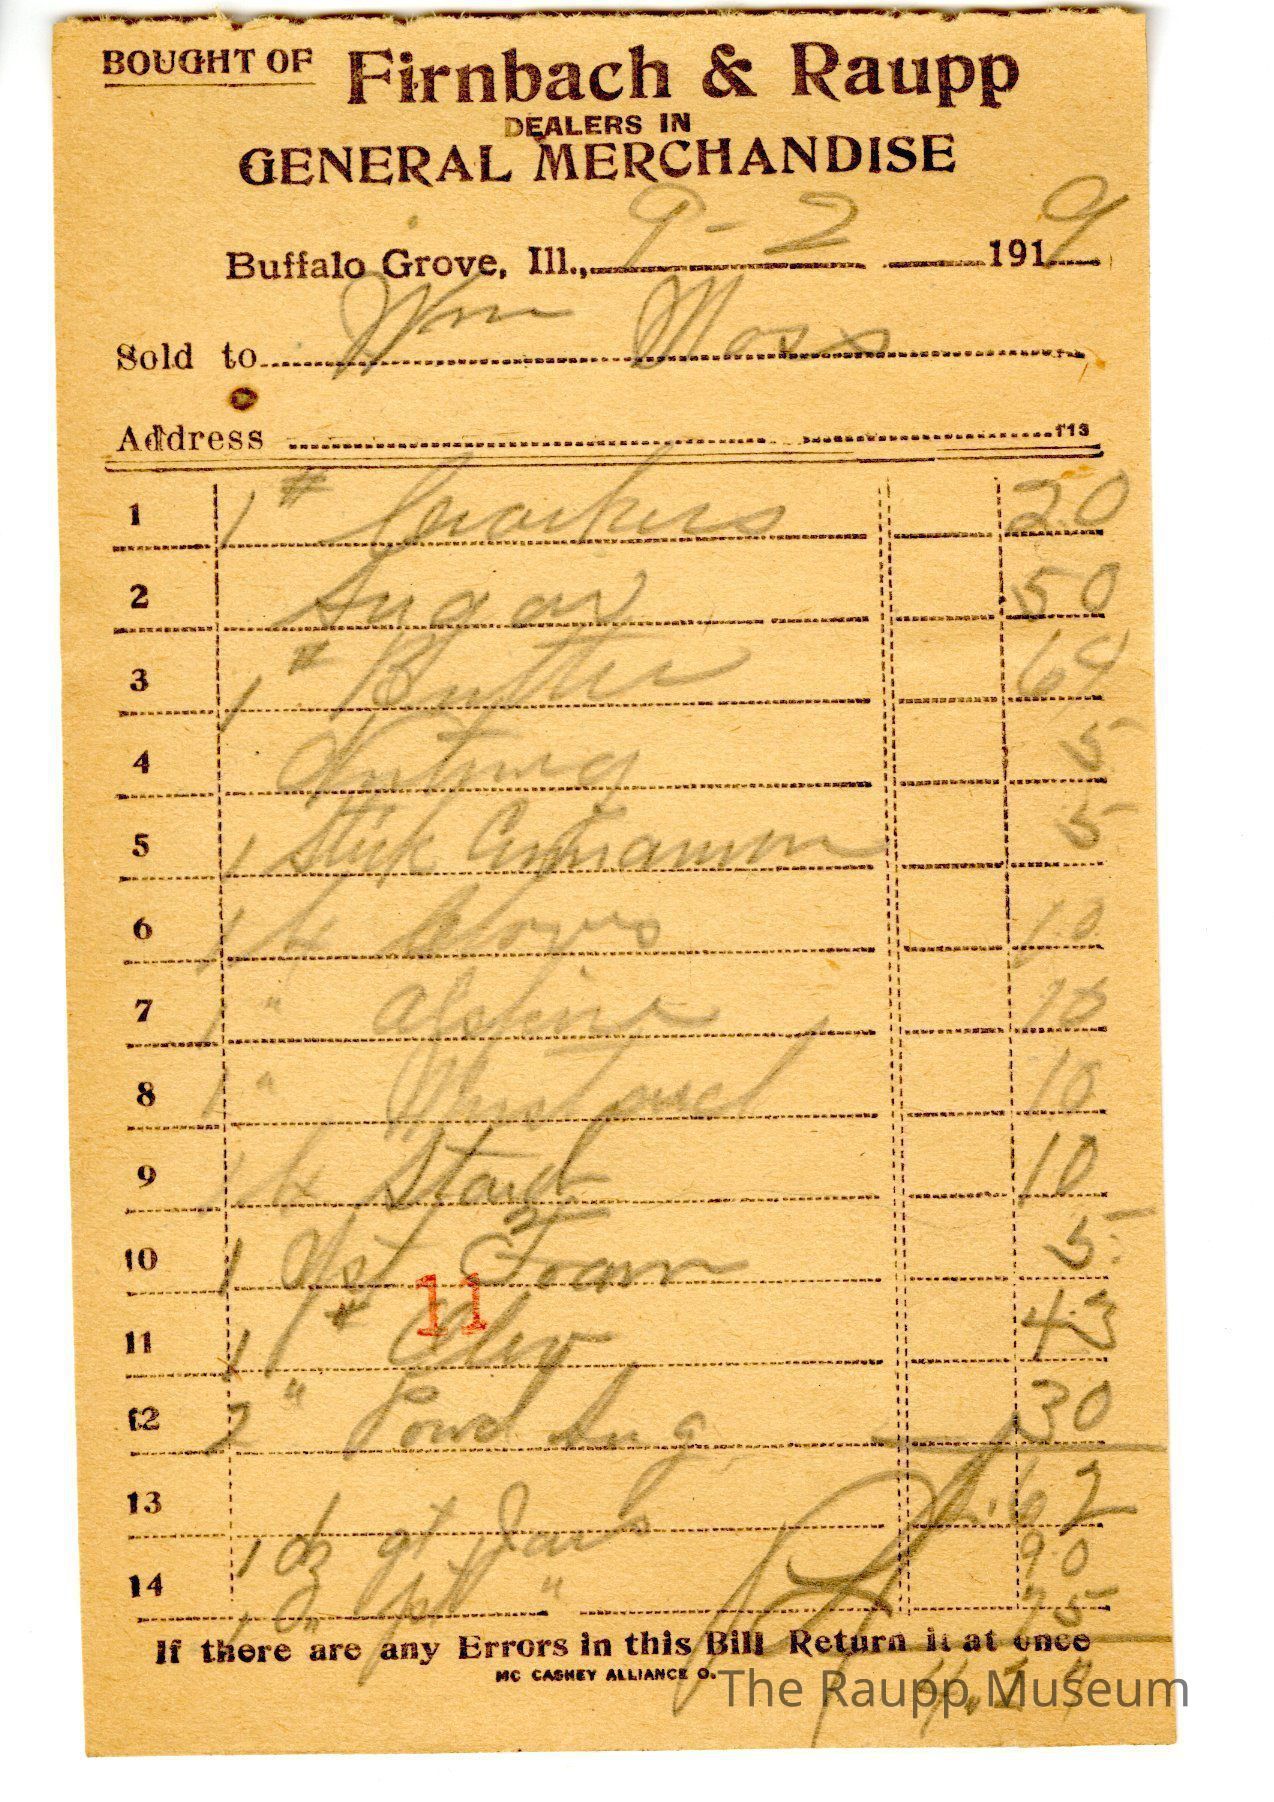 BOUGHT OF Firnbach & Raupp
DEALERS IN
GENERAL MERCHANDISE
Buffalo Grove, Ill., 9-2 1919
Sold to Wm Moss
Address 113
1 1 # Crackers 20
2 Sugar 50
3 1 # Butter 64
4 Nutmeg 5
5 1 Stick Cinnamon 5
6 1 Cloves 10
7 1 " 10
8 1 " Mustard 10
9 Starch 10
10 1 Yst Foam 5
11 1 # 43
11
12 2 " Powd Sug 30
13 2.62
1 dz qt Jars 90
14 1 dz pt " 75
If there are any Errors in this Bill Return it at once
MC CASKEY ALLIANCE O.
4.27
The Raupp Museum